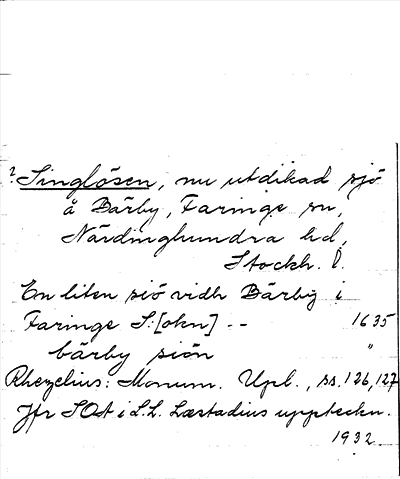 ? Singlösen, nu utdikad sjö
å Bärby, Faringe sn,
Närdinghundra hd,
Stockh. l.
En liten siö vidh Bärby i
Faringe S:[okn] -- 1635
bärby siön "
Rhezelius: Monum. Upl., ss. 126, 127
Jfr SOA i L.L. Læstadius uppteckn.
1932.